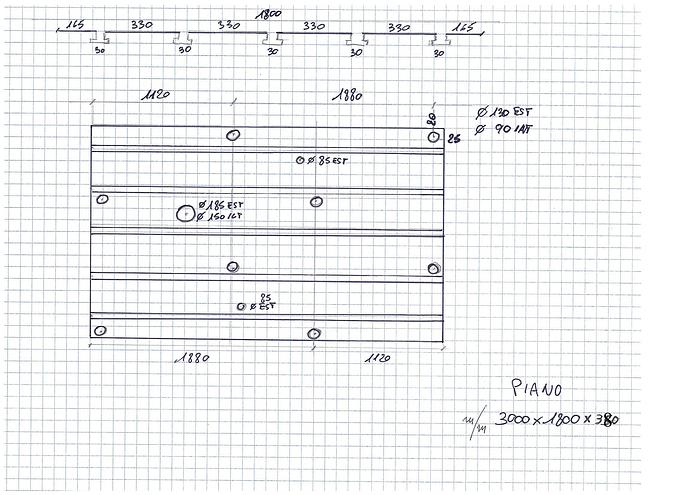 1800
165 330 330 330 330 165
30 30 30 30 30
1120 1880
20
Ø 130 EST
Ø 90 INT
25
Ø 85 EST
Ø 185 EST
Ø 150 INT
85
Ø EST
1880 1120
PIANO
m/m 3000 x 1800 x